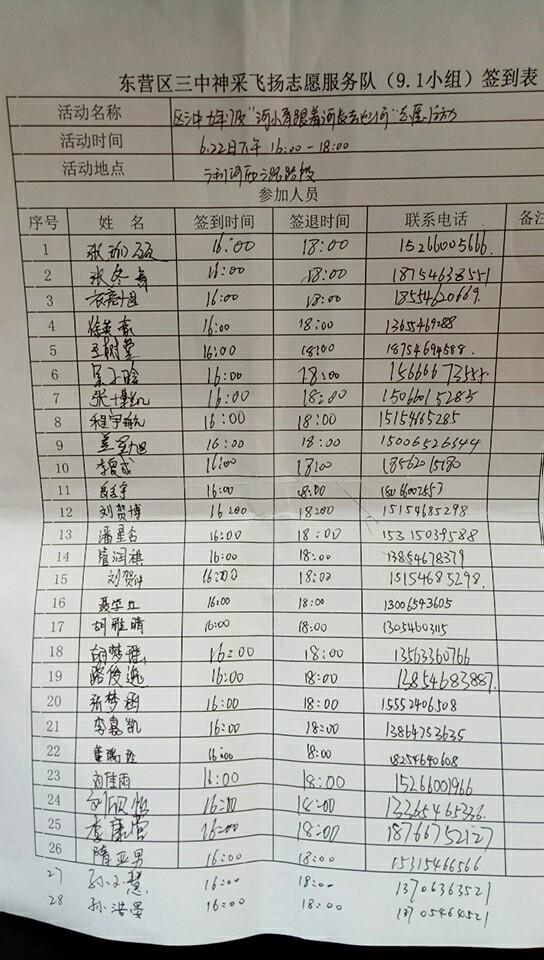 东营区三中神采飞扬志愿服务队（9.1小组）签到表
活动名称 区三中九年级“河小青跟着河长去巡河”志愿活动
活动时间 6.22日下午 16:00-18:00
活动地点
参加人员
序号 姓名 签到时间 签退时间 联系电话 备注
1 张 16:00 18:00 15266005666
2 张冬青 16:00 18:00 18754638551
3 16:00 18:00 18554620669
4 徐英豪 16:00 18:00 13655469288
5 王树莹 16:00 18:00 18754694588
6 16:00 18:00
7 张 16:00 18:00 15066015283
8 程宇航 16:00 18:00 15154665285
9 16:00 18:00 15006526344
10 李 16:00 18:00
11 16:00 18:00
12 刘贺博 16:00 18:00 15154685298
13 潘星合 16:00 18:00 15315039588
14 管润祺 16:00 18:00 13854678379
15 刘贺仲 16:00 18:00 15154685298
16 16:00 18:00 13006543605
17 胡雅晴 16:00 18:00 13054603115
18 胡梦 16:00 18:00 13563360766
19 路俊逸 16:00 18:00 13854683887
20 张梦函 16:00 18:00 15552406508
21 李嘉凯 16:00 18:00 13864753635
22 16:00 18:00 18254640608
23 尚佳雨 16:00 18:00 15266001966
24 刘欣怡 16:00 18:00 13365465336
25 李康营 16:00 18:00 18766752127
26 隋亚男 16:00 18:00 15315466566
27 孙子慧 16:00 18:00 13706363521
28 孙浩晏 16:00 18:00 13705464521